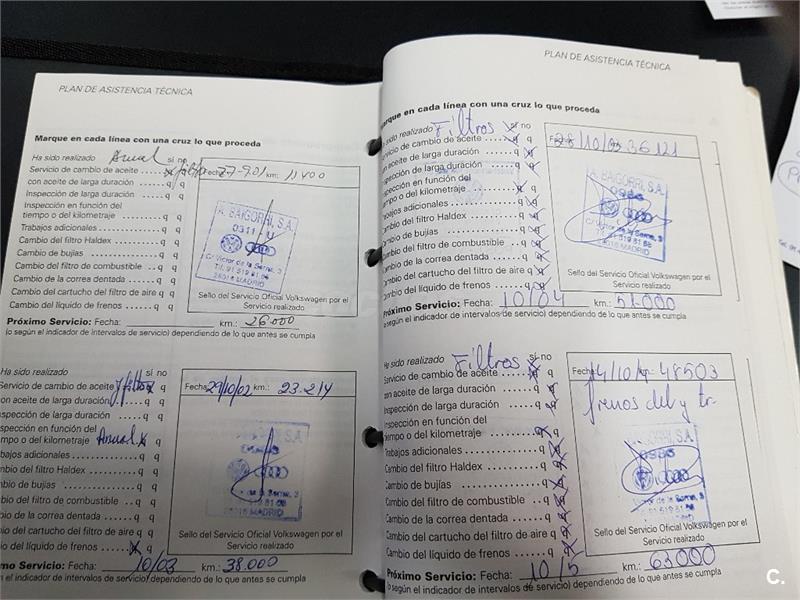 PLAN DE ASISTENCIA TÉCNICA
Marque en cada línea con una cruz lo que proceda
Ha sido realizado Anual sí no
Servicio de cambio de aceite
Fecha: 27-9-01 km: 11400
con aceite de larga duración q q
Inspección de larga duración q q
Inspección en función del
tiempo o del kilometraje q q
Trabajos adicionales q q
Cambio del filtro Haldex q q
Cambio de bujías q q
Cambio del filtro de combustible q q
Cambio de la correa dentada q q
Cambio del cartucho del filtro de aire q q
Cambio del líquido de frenos q q
A. BAIGORRI, S.A.
0311
C/ Víctor de la Serna, 3
Tif. 91 519 81 68
28016 MADRID
Sello del Servicio Oficial Volkswagen por el
Servicio realizado
Próximo Servicio: Fecha: km.: 26.000
(o según el indicador de intervalos de servicio) dependiendo de lo que antes se cumpla
Ha sido realizado sí no
Servicio de cambio de aceite y filtro
Fecha: 29/10/02 km.: 23.214
con aceite de larga duración q q
nspección de larga duración q q
nspección en función del
mpo o del kilometraje Anual
abajos adicionales q q
mbio del filtro Haldex q q
mbio de bujías q q
mbio del filtro de combustible q q
mbio de la correa dentada q q
mbio del cartucho del filtro de aire q q
bio del líquido de frenos q
BAIGORRI, S.A.
de la Serna, 3
91 519 81 68
28016 MADRID
Sello del Servicio Oficial Volkswagen por el
Servicio realizado
ximo Servicio: Fecha: 10/03 km.: 38.000
n el indicador de intervalos de servicio) dependiendo de lo que antes se cumpla
PLAN DE ASISTENCIA TÉCNICA
arque en cada línea con una cruz lo que proceda
a sido realizado Filtros sí no
ervicio de cambio de aceite q
Fecha: 28/10/03 36121
con aceite de larga duración q
nspección de larga duración q
nspección en función del
tiempo o del kilometraje q
rabajos adicionales q
Cambio del filtro Haldex q
Cambio de bujías q
Cambio del filtro de combustible q
Cambio de la correa dentada q
Cambio del cartucho del filtro de aire q
Cambio del líquido de frenos q
A. BAIGORRI, S.A.
0986
C/ Víctor de la Serna, 3
91 519 81 68
28016 MADRID
Sello del Servicio Oficial Volkswagen por el
Servicio realizado
Próximo Servicio: Fecha: 10/04 km.: 51.000
(o según el indicador de intervalos de servicio) dependiendo de lo que antes se cumpla
Ha sido realizado Filtros sí no
Servicio de cambio de aceite q
Fecha: 14/10/ km.: 48503
con aceite de larga duración q
frenos del y tr.
Inspección de larga duración q
Inspección en función del
tiempo o del kilometraje q
Trabajos adicionales q
Cambio del filtro Haldex q
Cambio de bujías q
Cambio del filtro de combustible q
Cambio de la correa dentada q
Cambio del cartucho del filtro de aire q
Cambio del líquido de frenos q
BAIGORRI, S.A.
0986
de la Serna, 3
91 519 81 68
28016 MADRID
Sello del Servicio Oficial Volkswagen por el
Servicio realizado
Próximo Servicio: Fecha: 10/5 km.: 63000
(o según el indicador de intervalos de servicio) dependiendo de lo que antes se cumpla
C.